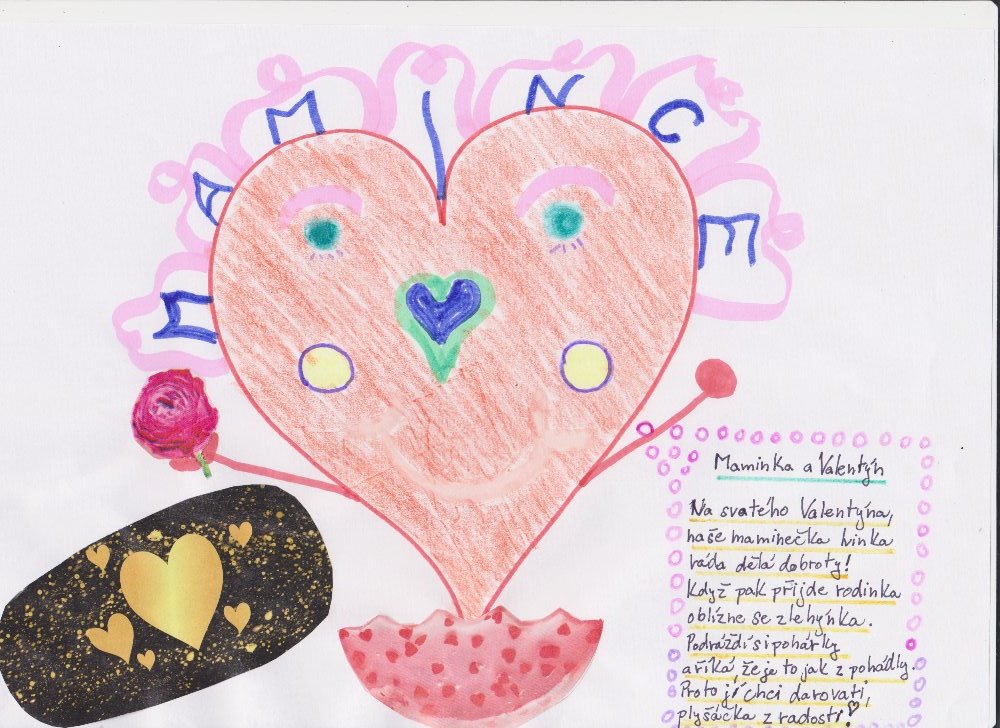 MAMINCE
Maminka a Valentýn
Na svatého Valentýna,
naše maminečka
ráda dělá dobroty!
Když pak přijde rodinka
oblízne se zlehýnka.
Podráždí si pohárky
a říká, že je to jak z pohádky.
Proto jí chci darovati,
plyšáčka z radosti